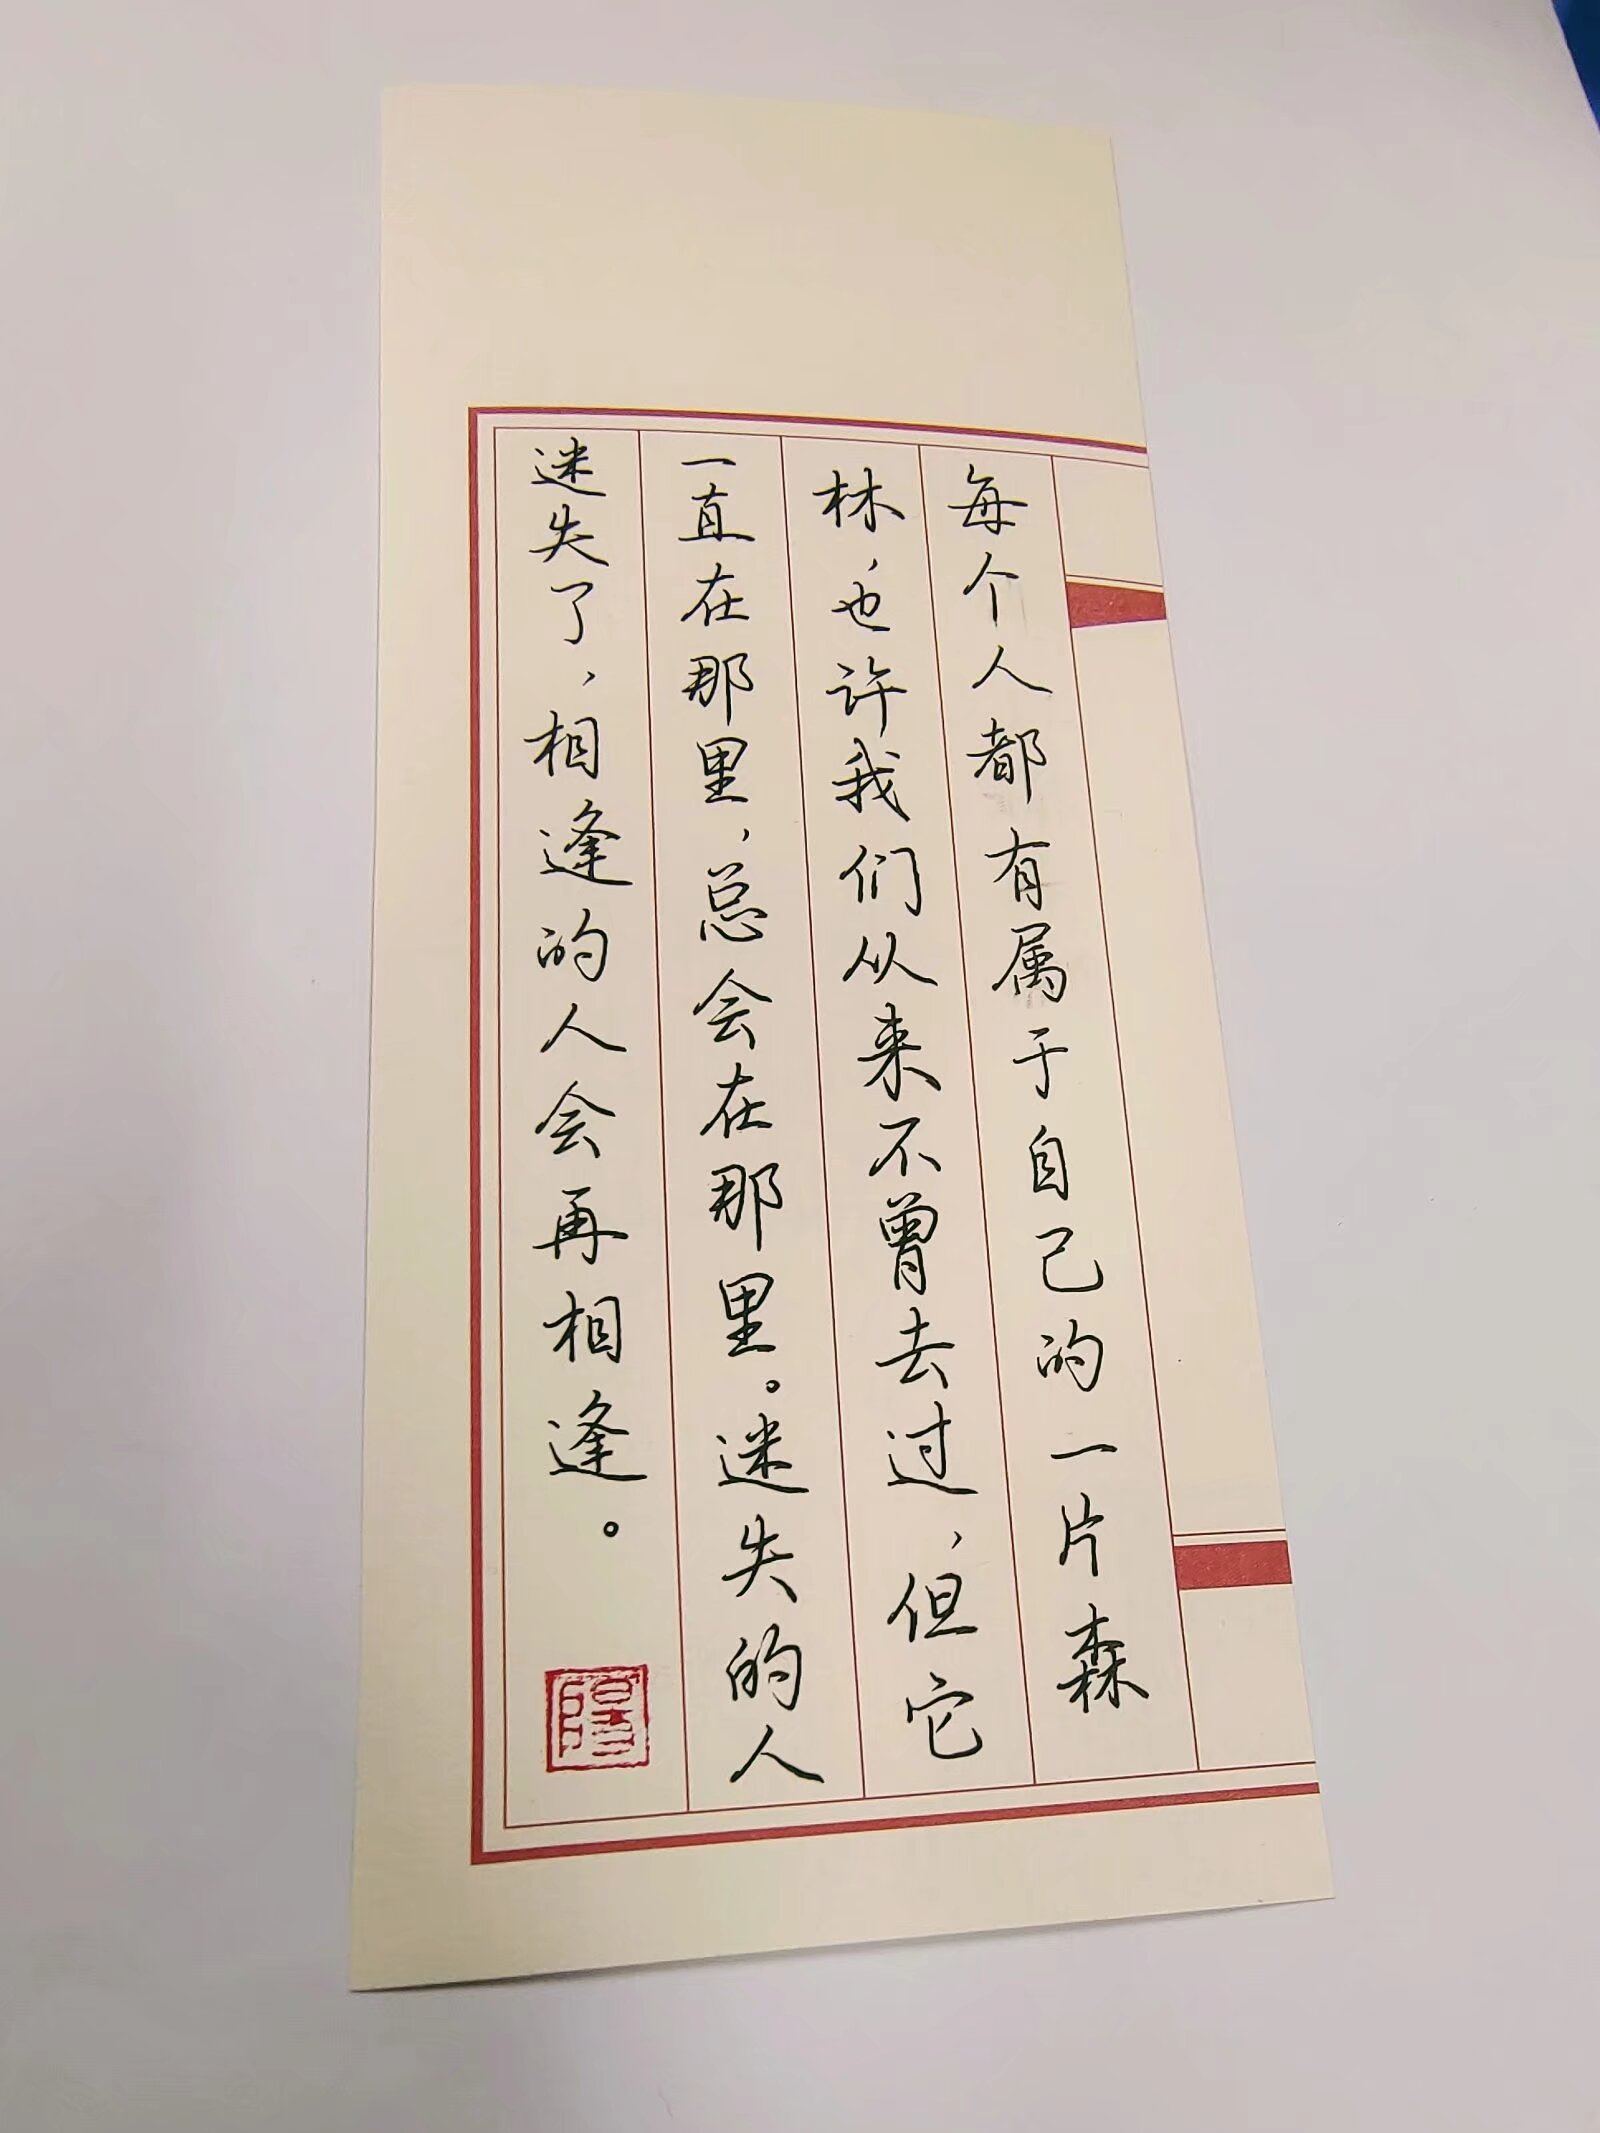 每个人都有属于自己的一片森
林，也许我们从来不曾去过，但它
一直在那里，总会在那里。迷失的人
迷失了，相逢的人会再相逢。
陽